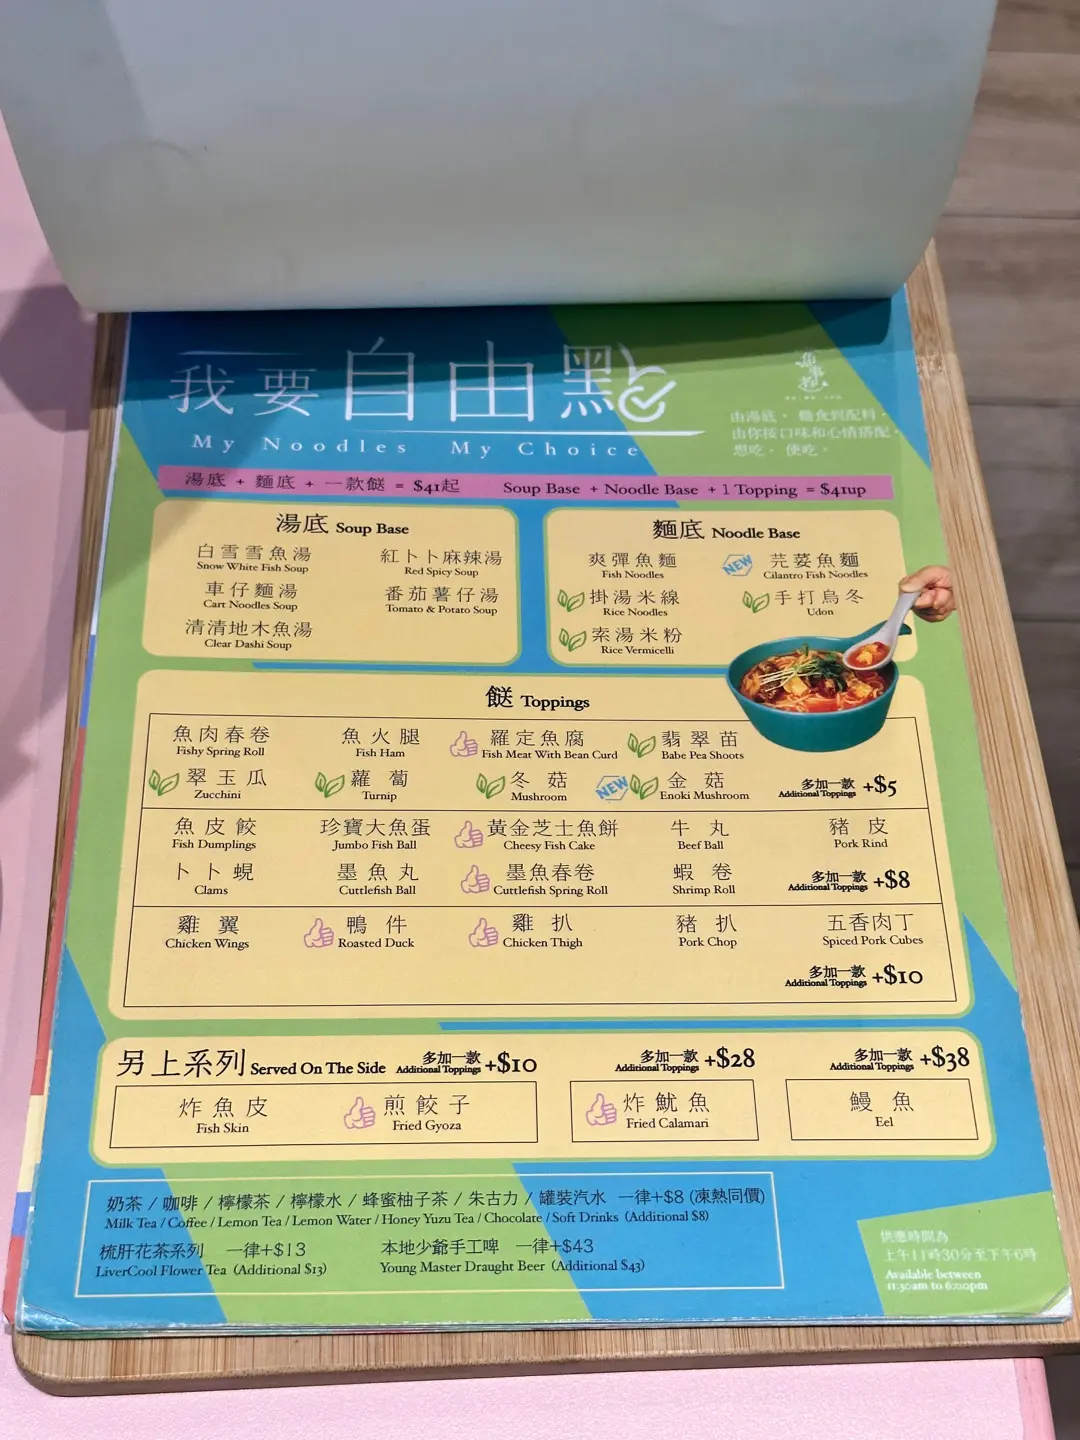 我要自由點
My Noodles My Choice
由湯底、麵食到配料，
由你按口味和心情搭配，
想吃、便吃。
湯底 + 麵底 + 一款餸 = $41起 Soup Base + Noodle Base + 1 Topping = $41up
湯底 Soup Base
白雪雪魚湯 紅卜卜麻辣湯
Snow White Fish Soup Red Spicy Soup
車仔麵湯 番茄薯仔湯
Cart Noodles Soup Tomato & Potato Soup
清清地木魚湯
Clear Dashi Soup
麵底 Noodle Base
爽彈魚麵 NEW 芫荽魚麵
Fish Noodles Cilantro Fish Noodles
掛湯米線 手打烏冬
Rice Noodles Udon
索湯米粉
Rice Vermicelli
餸 Toppings
魚肉春卷 魚火腿 羅定魚腐 翡翠苗
Fishy Spring Roll Fish Ham Fish Meat With Bean Curd Babe Pea Shoots
翠玉瓜 蘿蔔 冬菇 NEW 金菇 多加一款 +$5
Zucchini Turnip Mushroom Enoki Mushroom Additional Toppings
魚皮餃 珍寶大魚蛋 黃金芝士魚餅 牛丸 豬皮
Fish Dumplings Jumbo Fish Ball Cheesy Fish Cake Beef Ball Pork Rind
卜卜蜆 墨魚丸 墨魚春卷 蝦卷 多加一款 +$8
Clams Cuttlefish Ball Cuttlefish Spring Roll Shrimp Roll Additional Toppings
雞翼 鴨件 雞扒 豬扒 五香肉丁
Chicken Wings Roasted Duck Chicken Thigh Pork Chop Spiced Pork Cubes
多加一款 +$10
Additional Toppings
另上系列 Served On The Side 多加一款 Additional Toppings +$10 多加一款 Additional Toppings +$28 多加一款 Additional Toppings +$38
炸魚皮 煎餃子 炸魷魚 鰻魚
Fish Skin Fried Gyoza Fried Calamari Eel
奶茶 / 咖啡 / 檸檬茶 / 檸檬水 / 蜂蜜柚子茶 / 朱古力 / 罐裝汽水 一律+$8 (凍熱同價)
Milk Tea / Coffee / Lemon Tea / Lemon Water / Honey Yuzu Tea / Chocolate / Soft Drinks (Additional $8)
梳肝花茶系列 一律+$13 本地少爺手工啤 一律+$43
LiverCool Flower Tea (Additional $13) Young Master Draught Beer (Additional $43)
供應時間為
上午11時30分至下午6時
Available between
11:30am to 6:00pm